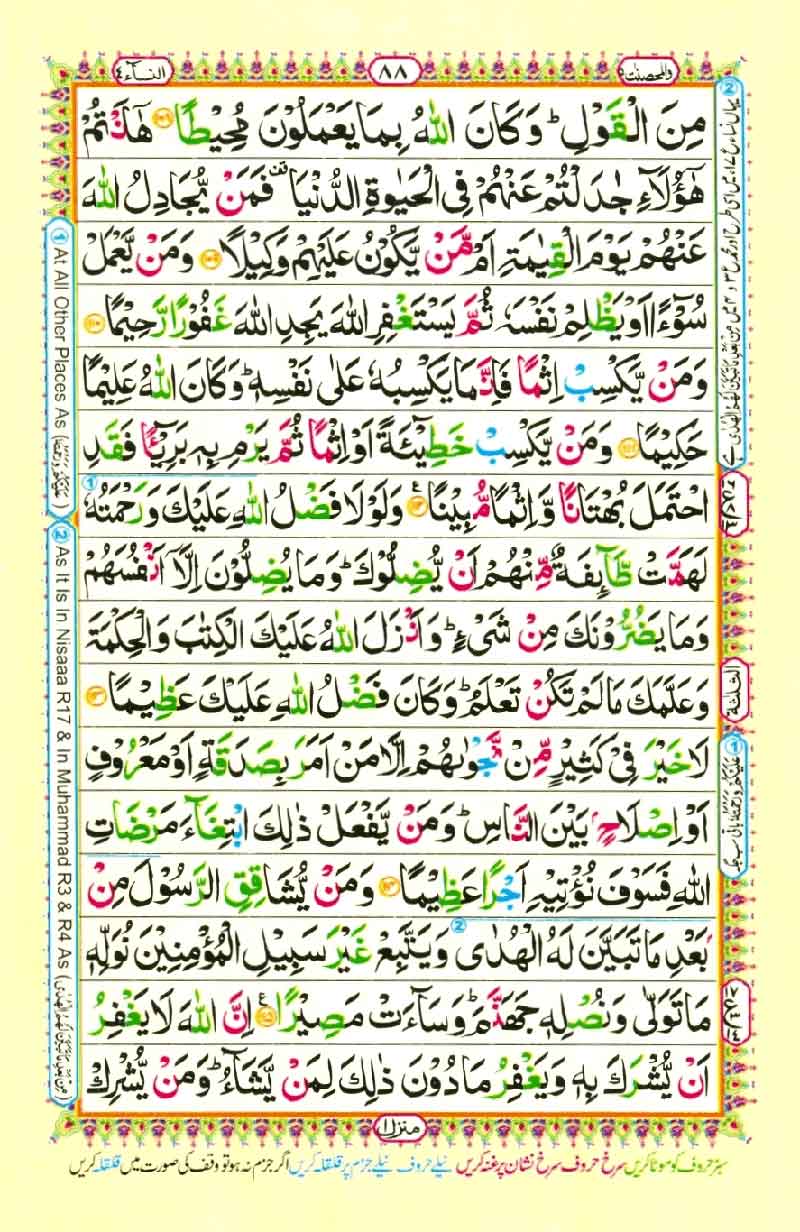 والمحصنت ٥
٨٨
النسآء ٤
مِنَ الْقَوْلِ ؕ وَكَانَ اللّٰهُ بِمَا يَعْمَلُوْنَ مُحِيْطًا ﴿۱۰۸﴾ هٰۤاَنْتُمْ
هٰۤؤُلَآءِ جٰدَلْتُمْ عَنْهُمْ فِى الْحَيٰوةِ الدُّنْيَا ۟ فَمَنْ يُّجَادِلُ اللّٰهَ
عَنْهُمْ يَوْمَ الْقِيٰمَةِ اَمْ مَّنْ يَّكُوْنُ عَلَيْهِمْ وَكِيْلًا ﴿۱۰۹﴾ وَمَنْ يَّعْمَلْ
سُوْٓءًا اَوْ يَظْلِمْ نَفْسَهٗ ثُمَّ يَسْتَغْفِرِ اللّٰهَ يَجِدِ اللّٰهَ غَفُوْرًا رَّحِيْمًا ﴿۱۱۰﴾
وَمَنْ يَّكْسِبْ اِثْمًا فَاِنَّمَا يَكْسِبُهٗ عَلٰى نَفْسِهٖ ؕ وَكَانَ اللّٰهُ عَلِيْمًا
حَكِيْمًا ﴿۱۱۱﴾ وَمَنْ يَّكْسِبْ خَطِيْٓئَةً اَوْ اِثْمًا ثُمَّ يَرْمِ بِهٖ بَرِيْٓئًا فَقَدِ
احْتَمَلَ بُهْتَانًا وَّاِثْمًا مُّبِيْنًا ﴿۱۱۲﴾ وَلَوْلَا فَضْلُ اللّٰهِ عَلَيْكَ وَرَحْمَتُهٗ
لَهَمَّتْ طَّآئِفَةٌ مِّنْهُمْ اَنْ يُّضِلُّوْكَ ؕ وَمَا يُضِلُّوْنَ اِلَّاۤ اَنْفُسَهُمْ
وَمَا يَضُرُّوْنَكَ مِنْ شَىْءٍ ؕ وَاَنْزَلَ اللّٰهُ عَلَيْكَ الْكِتٰبَ وَالْحِكْمَةَ
وَعَلَّمَكَ مَا لَمْ تَكُنْ تَعْلَمُ ؕ وَكَانَ فَضْلُ اللّٰهِ عَلَيْكَ عَظِيْمًا ﴿۱۱۳﴾
لَا خَيْرَ فِىْ كَثِيْرٍ مِّنْ نَّجْوٰىهُمْ اِلَّا مَنْ اَمَرَ بِصَدَقَةٍ اَوْ مَعْرُوْفٍ
اَوْ اِصْلَاحٍۢ بَيْنَ النَّاسِ ؕ وَمَنْ يَّفْعَلْ ذٰلِكَ ابْتِغَآءَ مَرْضَاتِ
اللّٰهِ فَسَوْفَ نُؤْتِيْهِ اَجْرًا عَظِيْمًا ﴿۱۱۴﴾ وَمَنْ يُّشَاقِقِ الرَّسُوْلَ مِنْۢ
بَعْدِ مَا تَبَيَّنَ لَهُ الْهُدٰى وَيَتَّبِعْ غَيْرَ سَبِيْلِ الْمُؤْمِنِيْنَ نُوَلِّهٖ
مَا تَوَلّٰى وَنُصْلِهٖ جَهَنَّمَ ؕ وَسَآءَتْ مَصِيْرًا ﴿۱۱۵﴾ اِنَّ اللّٰهَ لَا يَغْفِرُ
اَنْ يُّشْرَكَ بِهٖ وَيَغْفِرُ مَا دُوْنَ ذٰلِكَ لِمَنْ يَّشَآءُ ؕ وَمَنْ يُّشْرِكْ
① At All Other Places As
② As It Is In Nisaaa R17 & In Muhammad R3 & R4 As
الثلثة
منزل ١
سبز حروف کو موٹا کریں سرخ حروف سرخ نشان پر غنہ کریں نیلے حروف نیلے جزم پر قلقلہ کریں اگر جزم نہ ہو تو وقف کی صورت میں قلقلہ کریں